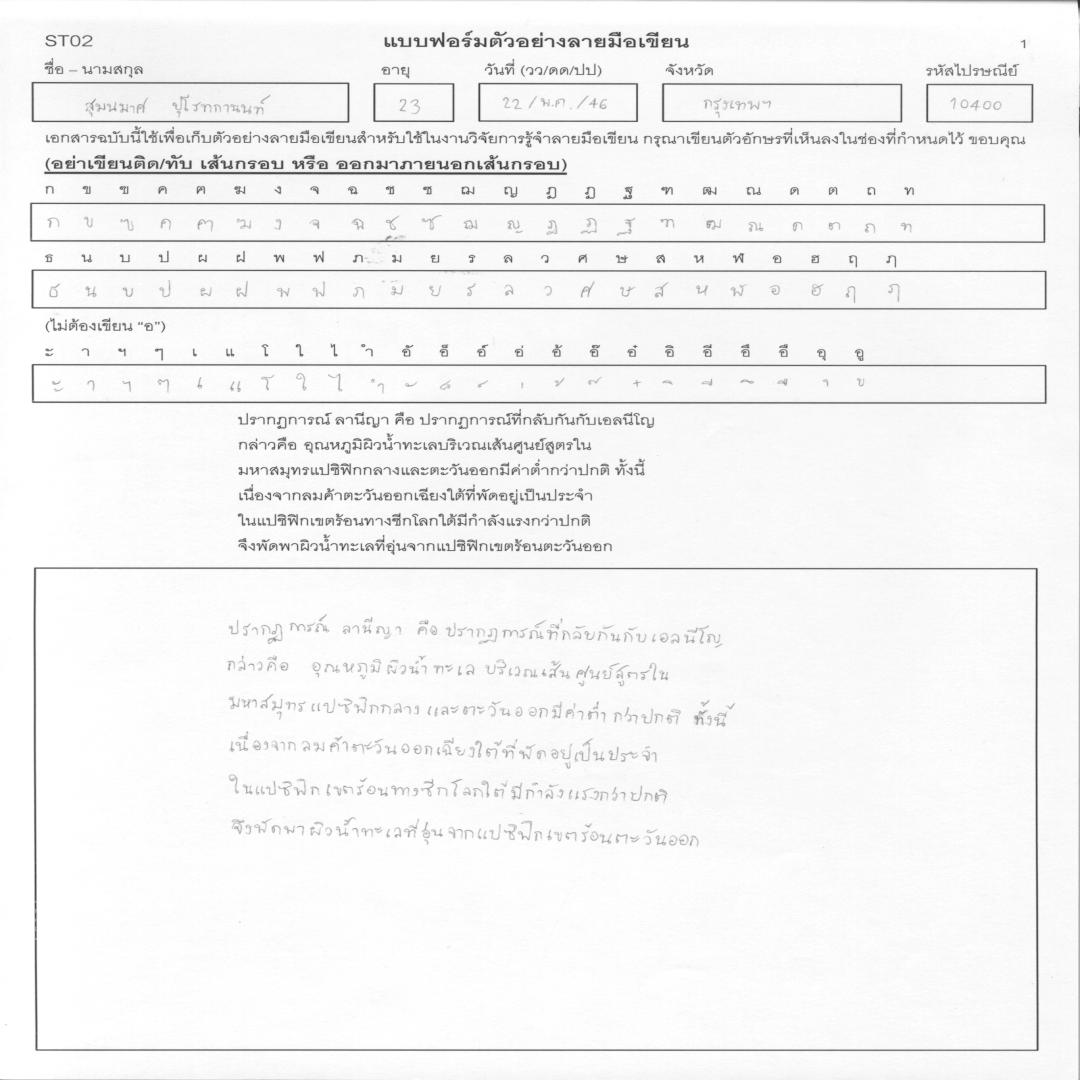 ST02 แบบฟอร์มตัวอย่างลายมือเขียน 1
ชื่อ – นามสกุล อายุ วันที่ (วว/ดด/ปป) จังหวัด รหัสไปรษณีย์
สุมนมาศ 23 22 / พ.ค. / 46 กรุงเทพฯ 10400
เอกสารฉบับนี้ใช้เพื่อเก็บตัวอย่างลายมือเขียนสำหรับใช้ในงานวิจัยการรู้จำลายมือเขียน กรุณาเขียนตัวอักษรที่เห็นลงในช่องที่กำหนดไว้ ขอบคุณ
(อย่าเขียนติด/ทับ เส้นกรอบ หรือ ออกมาภายนอกเส้นกรอบ)
ก ข ฃ ค ฅ ฆ ง จ ฉ ช ซ ฌ ญ ฎ ฏ ฐ ฑ ฒ ณ ด ต ถ ท
ก ข ฃ ค ฅ ฆ ง จ ฉ ช ซ ฌ ญ ฎ ฏ ฐ ฑ ฒ ณ ด ต ถ ท
ธ น บ ป ผ ฝ พ ฟ ภ ม ย ร ล ว ศ ษ ส ห ฬ อ ฮ ฤ ฦ
ธ น บ ป ผ ฝ พ ฟ ภ ม ย ร ล ว ศ ษ ส ห ฬ อ ฮ ฤ ฦ
(ไม่ต้องเขียน “อ”)
ะ า ฯ ๆ เ แ โ ใ ไ ำ อั อ็ อ์ อ่ อ้ อ๊ อ๋ อิ อี อึ อื อุ อู
ะ า ฯ ๆ เ แ โ ใ ไ ำ ั ็ ์ ่ ้ ๊ ๋ ิ ี ึ ื ุ ู
ปรากฏการณ์ ลานีญา คือ ปรากฏการณ์ที่กลับกันกับเอลนีโญ
กล่าวคือ อุณหภูมิผิวน้ำทะเลบริเวณเส้นศูนย์สูตรใน
มหาสมุทรแปซิฟิกกลางและตะวันออกมีค่าต่ำกว่าปกติ ทั้งนี้
เนื่องจากลมค้าตะวันออกเฉียงใต้ที่พัดอยู่เป็นประจำ
ในแปซิฟิกเขตร้อนทางซีกโลกใต้มีกำลังแรงกว่าปกติ
จึงพัดพาผิวน้ำทะเลที่อุ่นจากแปซิฟิกเขตร้อนตะวันออก
ปรากฏการณ์ ลานีญา คือ ปรากฏการณ์ที่กลับกันกับเอลนีโญ
กล่าวคือ อุณหภูมิผิวน้ำทะเล บริเวณเส้นศูนย์สูตรใน
มหาสมุทรแปซิฟิกกลาง และตะวันออกมีค่าต่ำกว่าปกติ ทั้งนี้
เนื่องจากลมค้าตะวันออกเฉียงใต้ที่พัดอยู่เป็นประจำ
ในแปซิฟิกเขตร้อนทางซีกโลกใต้มีกำลังแรงกว่าปกติ
จึงพัดพาผิวน้ำทะเลที่อุ่นจากแปซิฟิกเขตร้อนตะวันออก